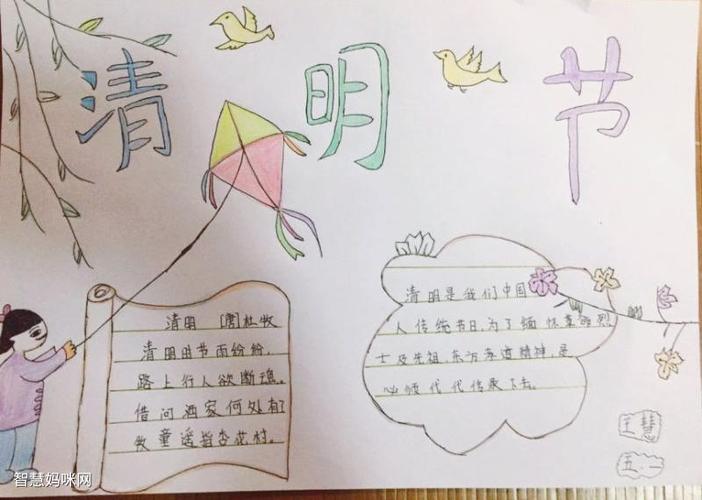 清明节
清明 [唐]杜牧
清明时节雨纷纷,
路上行人欲断魂。
借问酒家何处有
牧童遥指杏花村。
清明是我们中国
人传统节日,为了缅怀革命烈
士及先祖东方孝道精神,是
必须代代传承下去。
王慧
五.二
智慧妈咪网